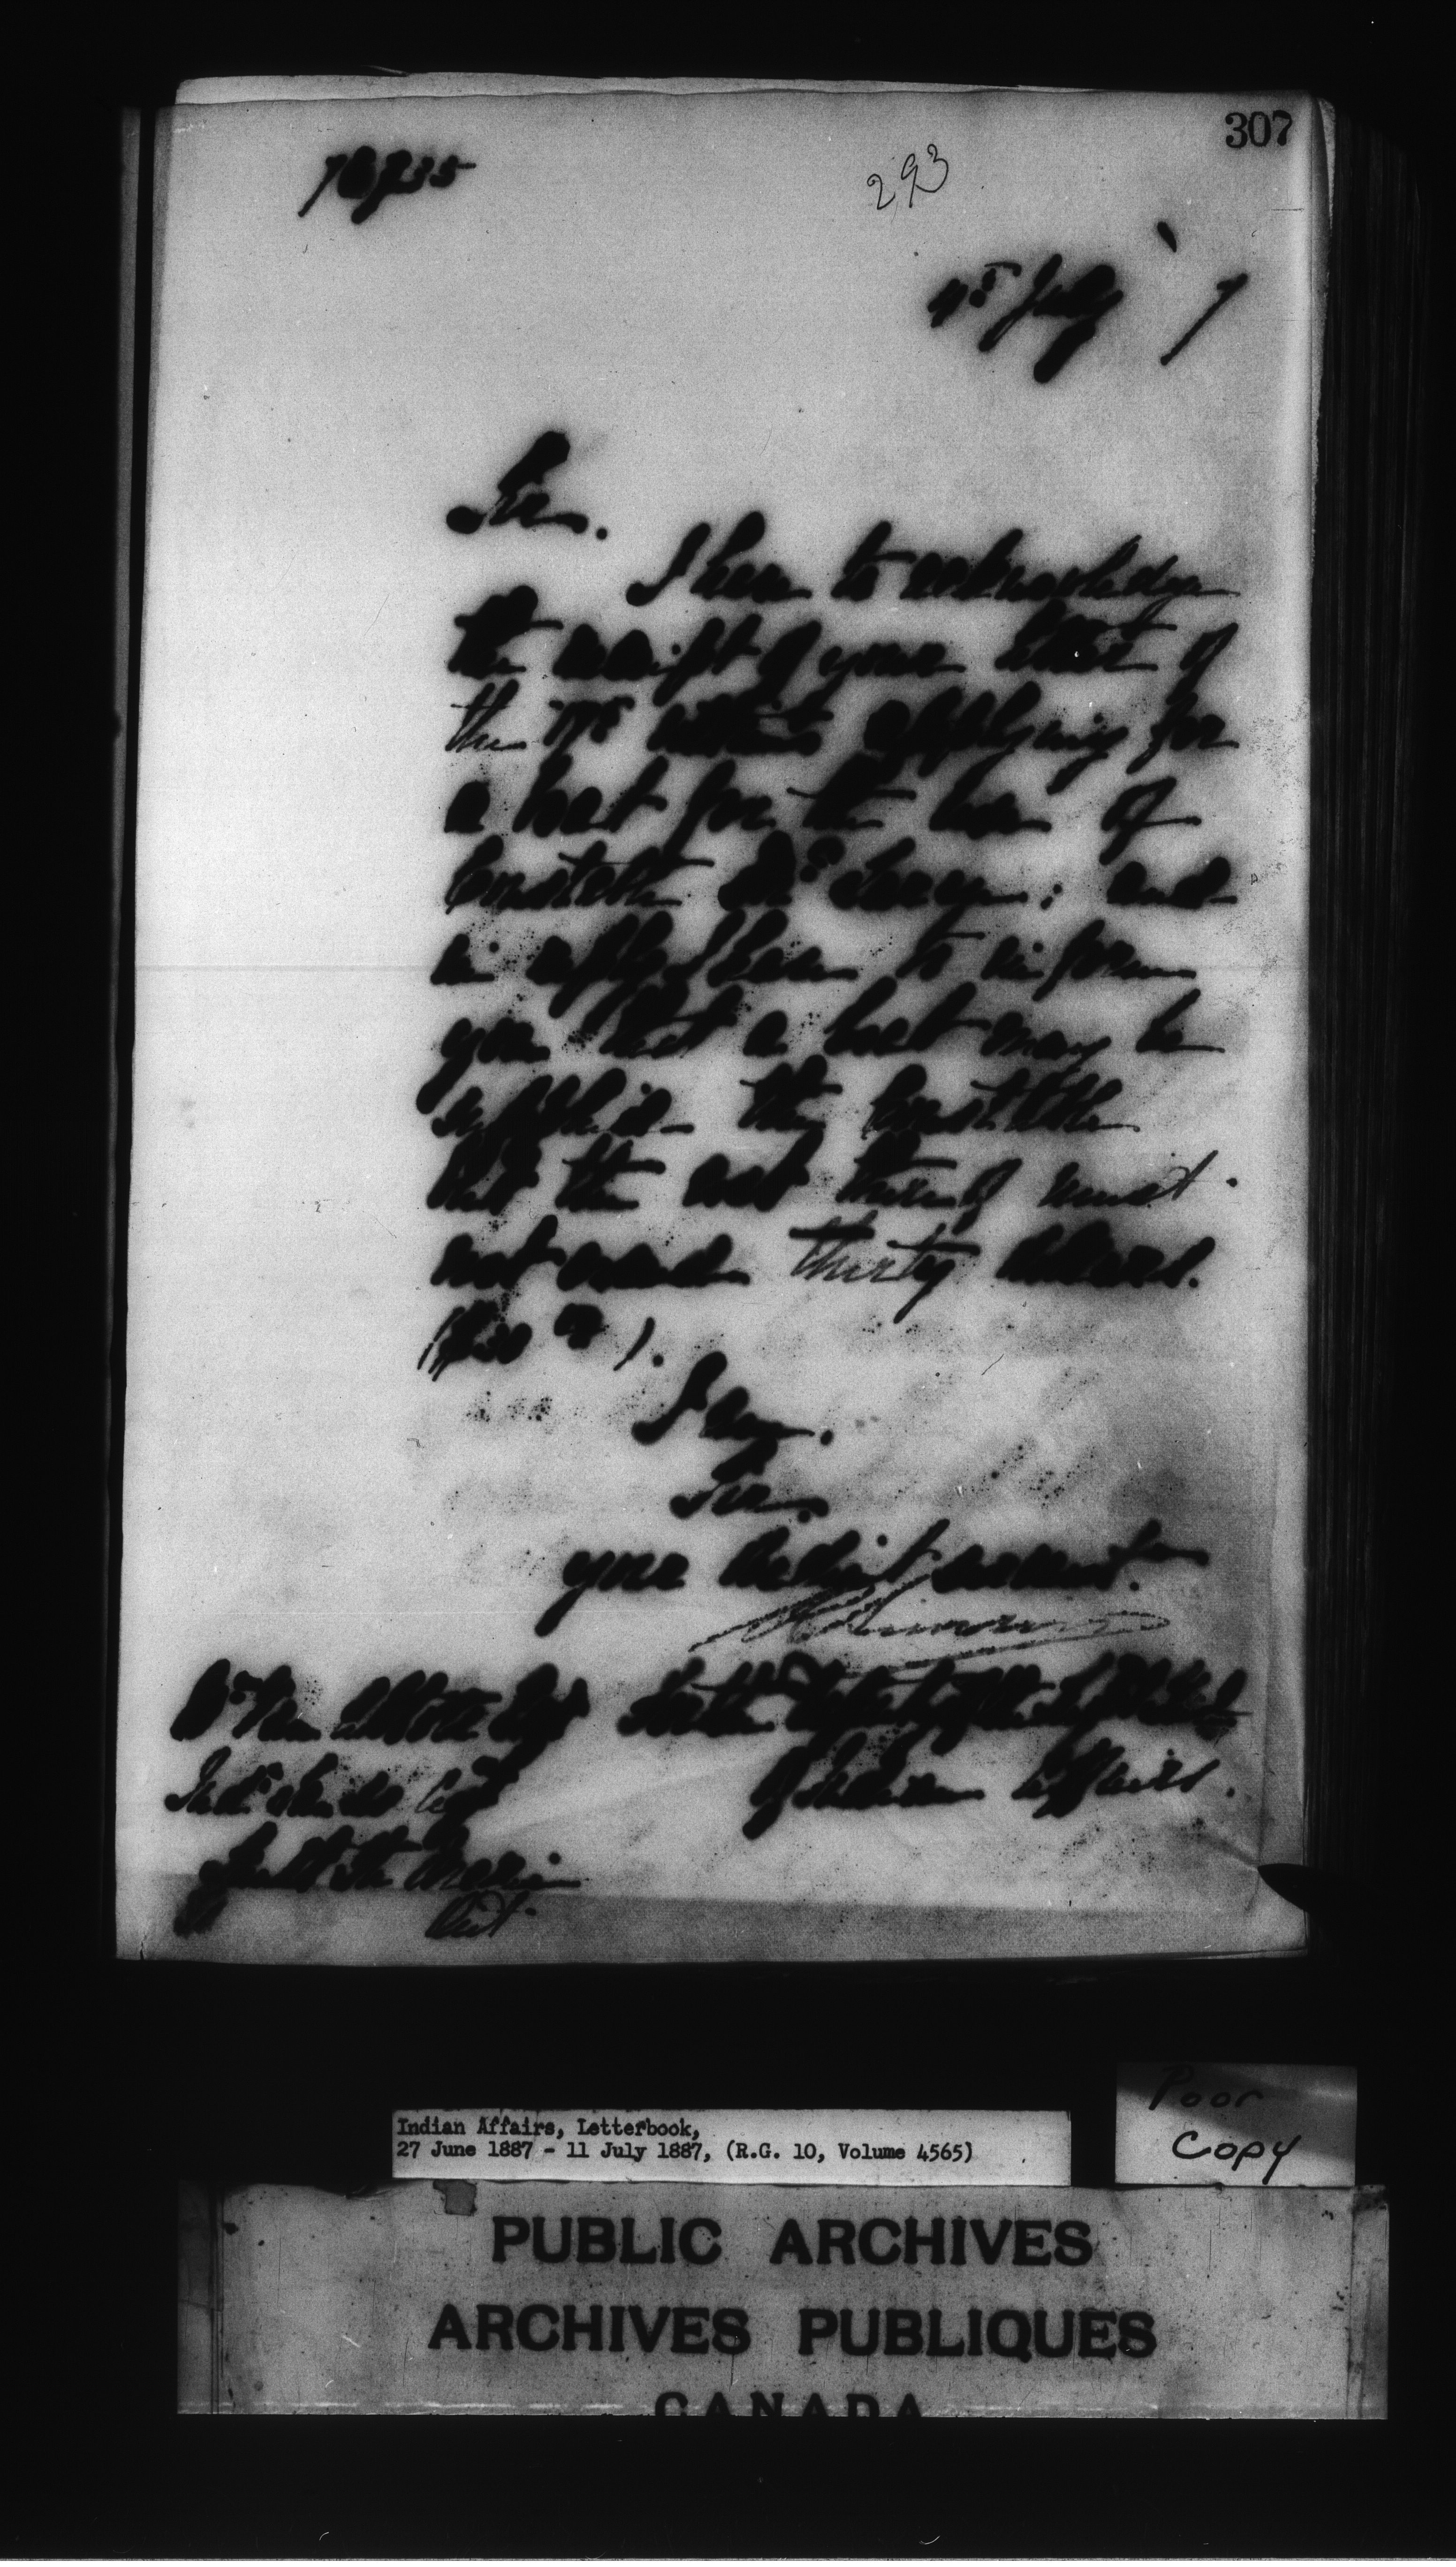 307
293
July 7
Sir.
I have to acknowledge
the receipt of your letter of
the applying for
a boat for the use of
Constable Mc ; and
in reply I have to inform
you that a boat may be
supplied the Constable
but the cost thereof must
not exceed thirty dollars.
($30 00).
I am.
Sir.
your obedient servant.
Wm Abbott Esq
of Indian Affairs.
Ind. Lands Agt
Sault Ste Marie
Ont.
Poor
Copy
Indian Affairs, Letterbook,
27 June 1887 - 11 July 1887, (R.G. 10, Volume 4565)
PUBLIC ARCHIVES
ARCHIVES PUBLIQUES
CANADA